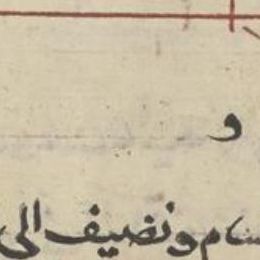 و
ـسام ونضيف الى